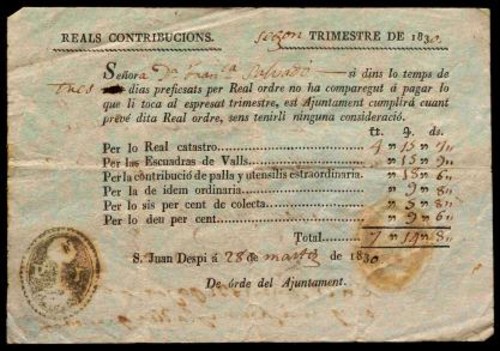 REALS CONTRIBUCIONS. segon TRIMESTRE DE 1830.
Señora Dª Franca Salvadó si dins lo temps de
tres dias prefiesats per Real ordre no ha comparegut á pagar lo
que li toca al espresat trimestre, est Ajuntament cumplirá cuant
prevé dita Real ordre, sens tenirli ninguna consideració.
tt. ds.
Per lo Real catastro 4 " 15 "
Per las Escuadras de Valls " 15 "
Per la contribució de palla y utensilis estraordinaria. " 18 " 6 "
Per la de idem ordinaria " 9 " 8 "
Per lo sis per cent de colecta " 5 " 8 "
Per lo deu per cent " 9 " 6 "
Total 7 " 14 " 8 "
S. Juan Despi á 28 de de 1830
De órde del Ajuntament.